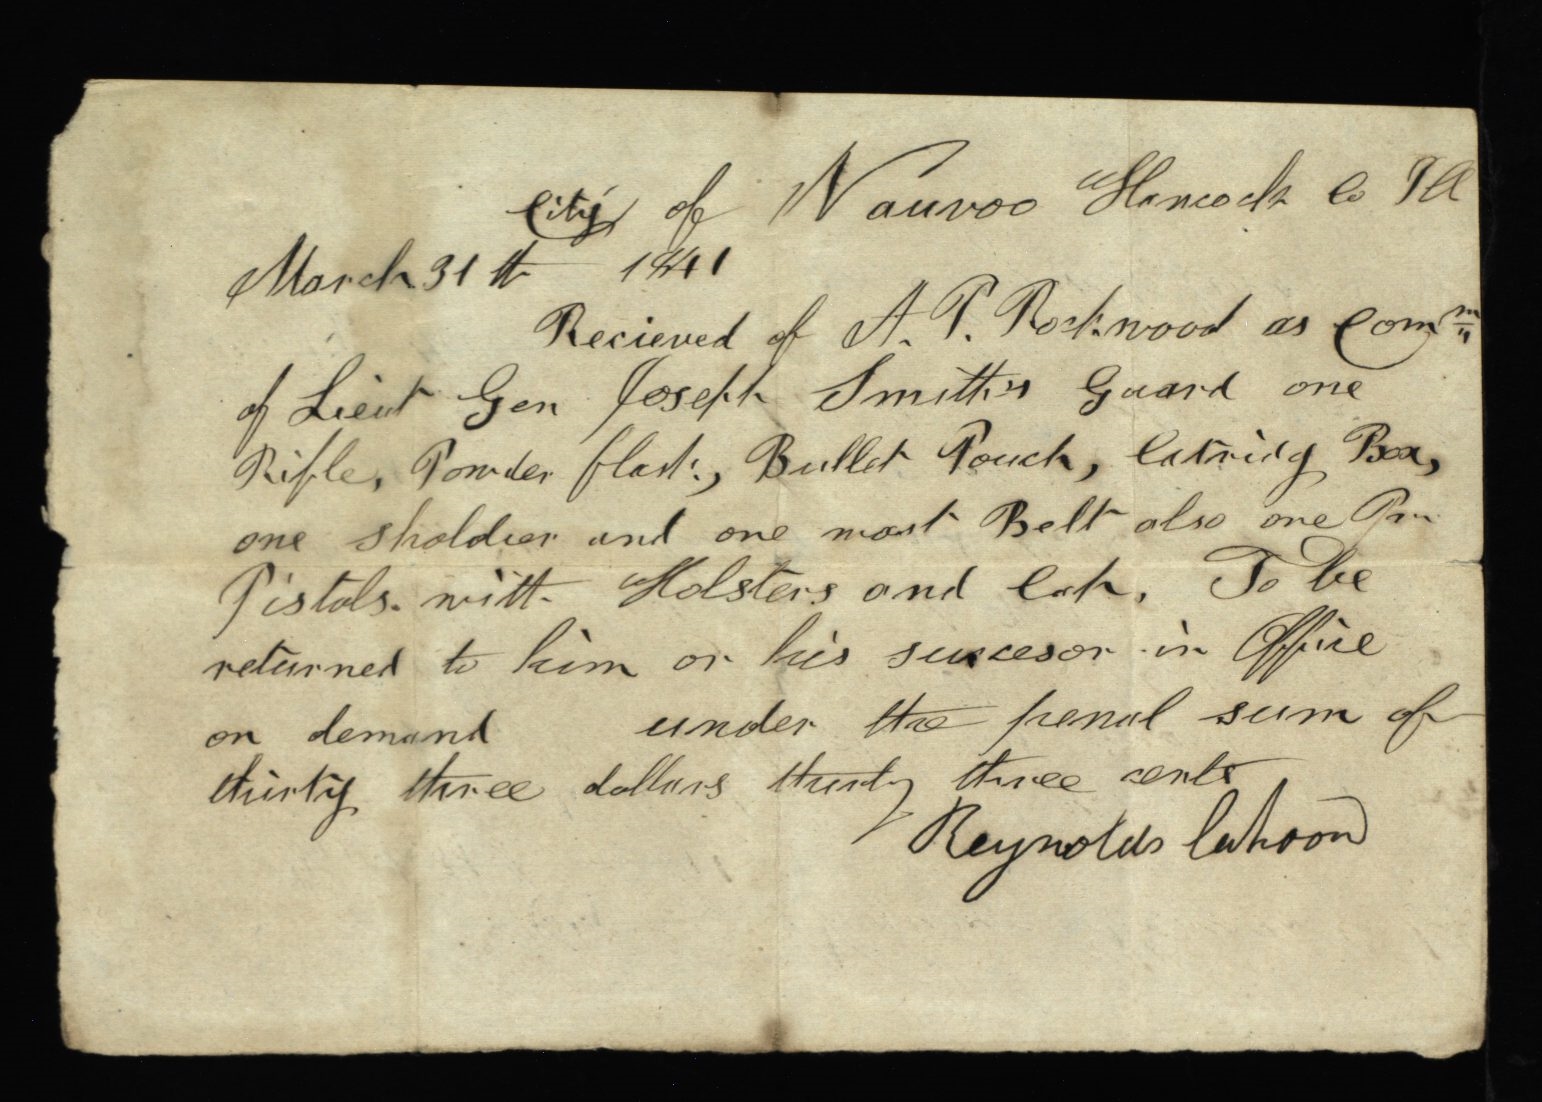 City of Nauvoo Hancock Co Ill
March 31th 1841
Recieved of A. P. Rockwood as Comm
of Lieut Gen Joseph Smith's Guard one
Rifle, Powder flask, Bullet Pouch, Catridg Box,
one sholdier and one wast Belt also one Pr
Pistols. with Holsters and Cah. To be
returned to him or his succesor in Office
on demand under the penal sum of
thirty three dollars thirty three cents
Reynolds Cahoon